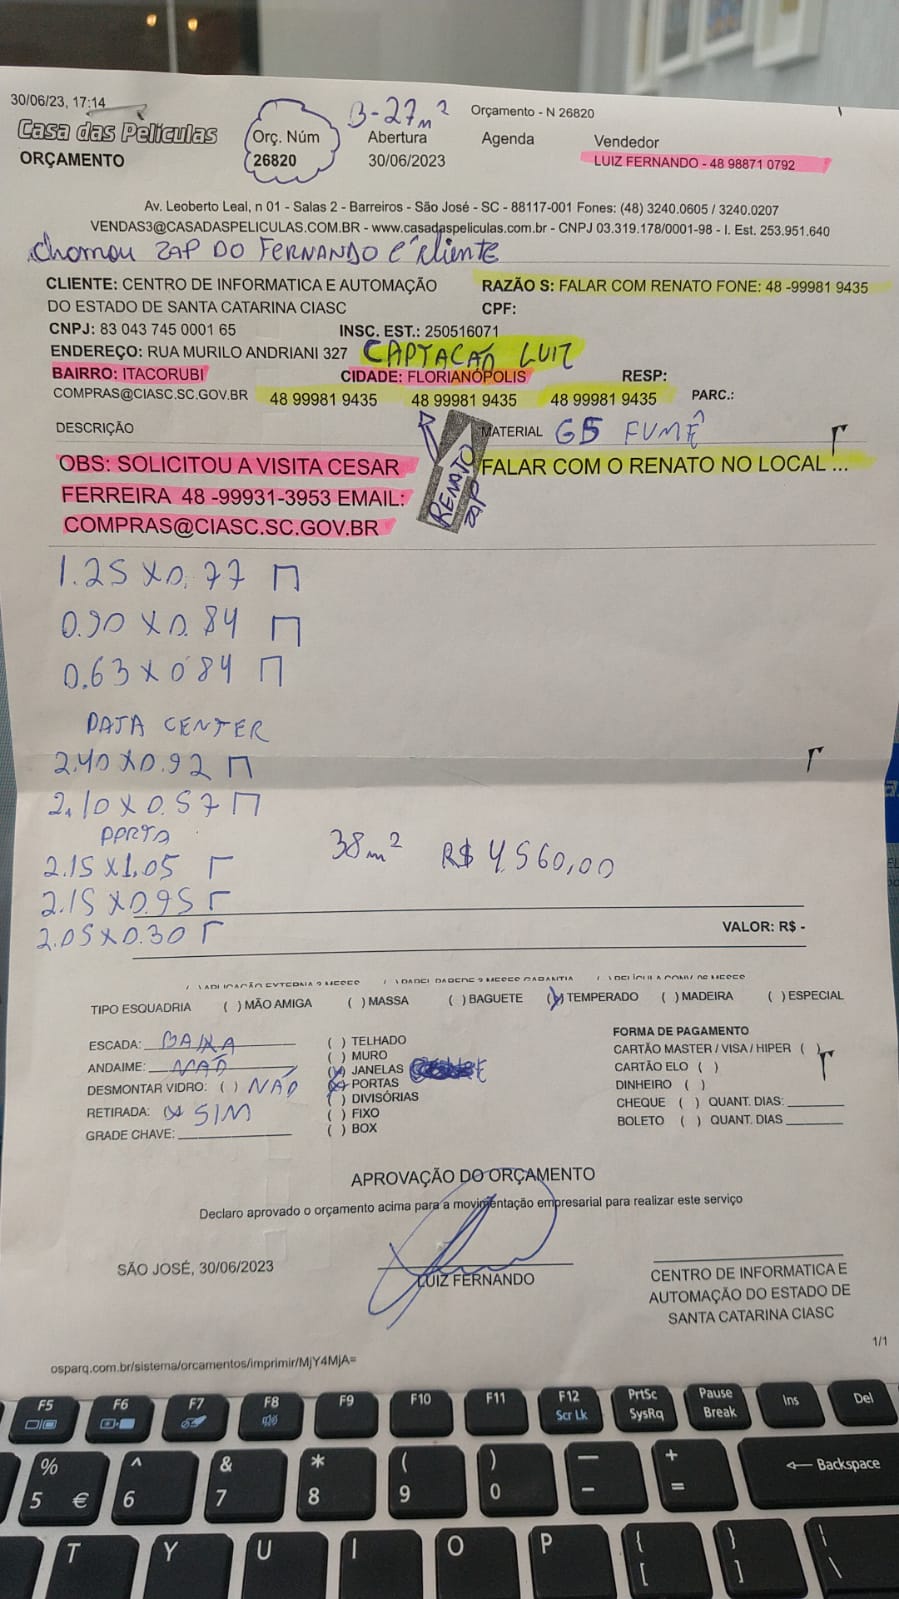 30/06/23, 17:14
B-27m²
Orçamento - N 26820
Casa das Películas
ORÇAMENTO
Orç. Núm
26820
Abertura
30/06/2023
Agenda
Vendedor
LUIZ FERNANDO - 48 98871 0792
Av. Leoberto Leal, n 01 - Salas 2 - Barreiros - São José - SC - 88117-001 Fones: (48) 3240.0605 / 3240.0207
VENDAS3@CASADASPELICULAS.COM.BR - www.casadaspeliculas.com.br - CNPJ 03.319.178/0001-98 - I. Est. 253.951.640
Chamou ZAP DO FERNANDO E Cliente
CLIENTE: CENTRO DE INFORMATICA E AUTOMAÇÃO
DO ESTADO DE SANTA CATARINA CIASC
RAZÃO S: FALAR COM RENATO FONE: 48 -99981 9435
CPF:
CNPJ: 83 043 745 0001 65
INSC. EST.: 250516071
ENDEREÇO: RUA MURILO ANDRIANI 327
CAPTAÇÃO LUIZ
BAIRRO: ITACORUBI
CIDADE: FLORIANÓPOLIS
RESP:
COMPRAS@CIASC.SC.GOV.BR
48 99981 9435 48 99981 9435 48 99981 9435
PARC.:
DESCRIÇÃO
MATERIAL G5 FUMÊ
OBS: SOLICITOU A VISITA CESAR
FERREIRA 48 -99931-3953 EMAIL:
COMPRAS@CIASC.SC.GOV.BR
RENATO
ZAP
FALAR COM O RENATO NO LOCAL ...
1.25 X 0.77
0.90 X 0.84
0.63 X 084
DATA CENTER
2.40 X 0.92
2.10 X 0.57
PORTA
2.15 X 1.05
2.15 X 0.95
2.05 X 0.30
38m² R$ 4.560,00
VALOR: R$ -
TIPO ESQUADRIA ( ) MÃO AMIGA ( ) MASSA ( ) BAGUETE (X) TEMPERADO ( ) MADEIRA ( ) ESPECIAL
ESCADA: BAIXA
ANDAIME: NÃO
DESMONTAR VIDRO: ( ) NÃO
RETIRADA: (X SIM
GRADE CHAVE:
( ) TELHADO
( ) MURO
(X) JANELAS
(X) PORTAS
( ) DIVISÓRIAS
( ) FIXO
( ) BOX
FORMA DE PAGAMENTO
CARTÃO MASTER / VISA / HIPER ( )
CARTÃO ELO ( )
DINHEIRO ( )
CHEQUE ( ) QUANT. DIAS:
BOLETO ( ) QUANT. DIAS
APROVAÇÃO DO ORÇAMENTO
Declaro aprovado o orçamento acima para a movimentação empresarial para realizar este serviço
SÃO JOSÉ, 30/06/2023
LUIZ FERNANDO
CENTRO DE INFORMATICA E
AUTOMAÇÃO DO ESTADO DE
SANTA CATARINA CIASC
1/1
osparq.com.br/sistema/orcamentos/imprimir/MjY4MjA=
F5 F6 F7 F8 F9 F10 F11 F12 Scr Lk PrtSc SysRq Pause Break Ins Del
% 5 € ^ 6 & 7 * 8 ( 9 ) 0 — - + = ← Backspace
T Y U I O P { [ } ] | \